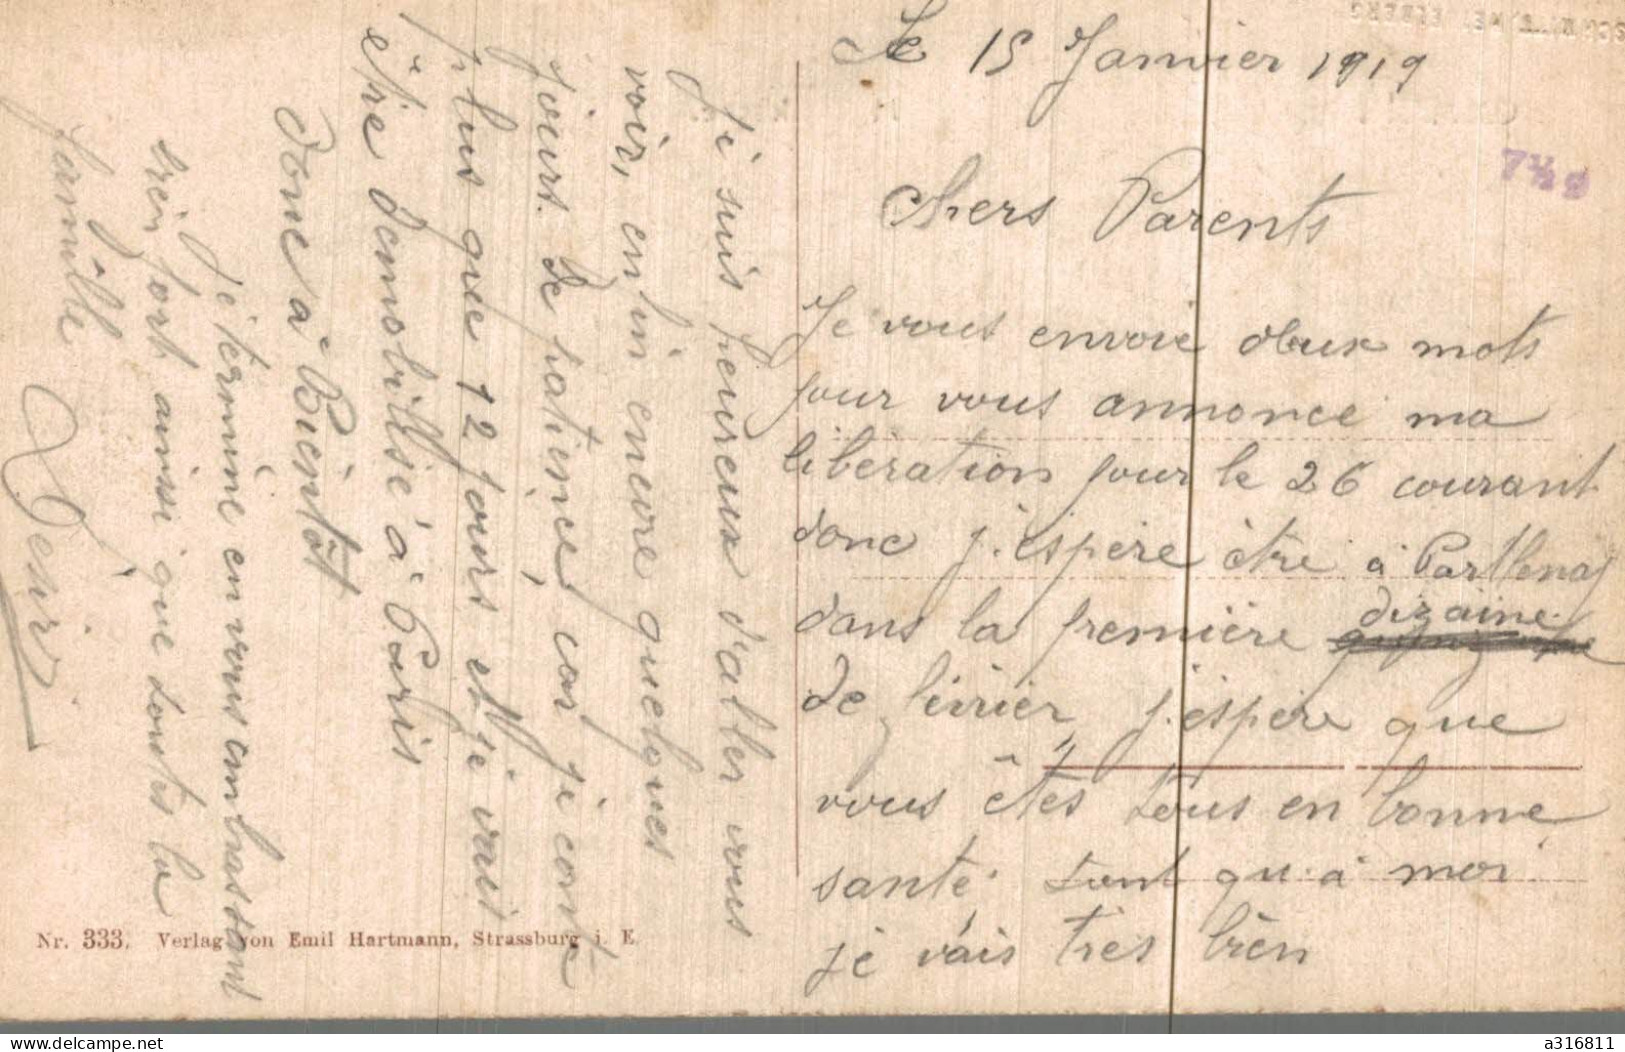 Le 15 Janvier 1919
Chers Parents
Je vous envoie deux mots
pour vous annonce ma
libération pour le 26 courant
donc j'éspére être à Parthenay
dans la première dizaine
de février, j'éspère que
vous êtes tous en bonne
santé tant qu'à moi
je vais très bien
je suis heureux d'aller vous
voir, enfin encore quelques
jours de patience, car je conte
plus que 12 jours et je vais
être demobillisé à Paris
donc à Bientôt
Je términe en vous embrassant
bien fort ainsi que toutes la
famille
Nr. 333. Verlag von Emil Hartmann, Strassburg i. E.
7½ 9
delcampe.net
a316811